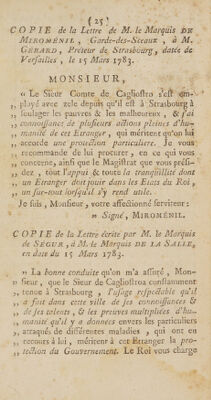 ( 25 )
COPIE de la Lettre de M. le Marquis DE
MIROMÉNIL, Garde-des-Sceaux, à M.
GERARD, Préteur de Strasbourg, datée de
Versailles, le 15 Mars 1783.
MONSIEUR,
« Le Sieur Comte de Cagliostro s'est em-
„ ployé avec zele depuis qu'il est à Strasbourg à
„ soulager les pauvres & les malheureux, & j'ai
„ connoissance de plusieurs actions pleines d'hu-
„ manité de cet Etranger, qui méritent qu'on lui
„ accorde une protection particuliere. Je vous
„ recommande de lui procurer, en ce qui vous
„ concerne, ainsi que le Magistrat que vous prési-
„ dez, tout l'appui & toute la tranquillité dont
„ un Etranger doit jouir dans les Etats du Roi,
„ un sur-tout lorsqu'il s'y rend utile.
Je suis, Monsieur, votre affectionné serviteur :
» Signé, MIROMÉNIL.
COPIE de la Lettre écrite par M. le Marquis
DE SÉGUR, à M. le Marquis DE LA SALLE,
en date du 15 Mars 1783.
» La bonne conduite qu'on m'a assuré, Mon-
„ sieur, que le Sieur de Cagliostro a constamment
„ tenue à Strasbourg, l'usage respectable qu'il
„ a fait dans cette ville de ses connoissances &
„ de ses talents, & les preuves multipliées d'hu-
„ manité qu'il y a données envers les particuliers
„ attaqués de différentes maladies, qui ont eu
„ recours à lui, méritent à cet Etranger la pro-
„ tection du Gouvernement. Le Roi vous charge